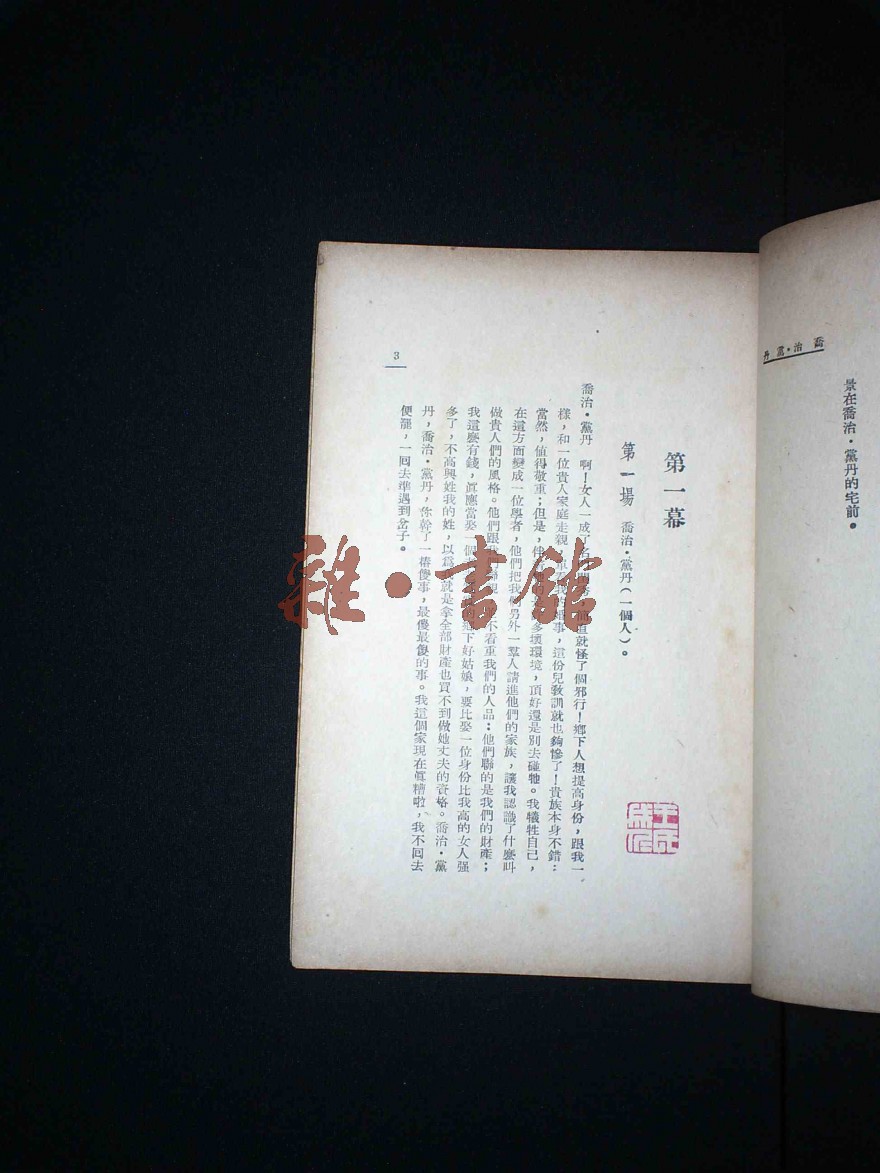 喬治・黨丹
景在喬治・黨丹的宅前。
第一幕
第一場 喬治・黨丹(一個人)。
喬治・黨丹 啊!女人一成了 就怪了個邪行!鄉下人想提高身份,跟我一
樣,和一位貴人家庭走親, 的婚事,這份兒敎訓就也夠慘了!貴族本身不錯:
當然,値得敬重;但是,伴 多壞環境,頂好還是別去碰牠。我犧牲自己,
在這方面變成一位學者, 他們把我們另外一羣人請進他們的家族,讓我認識了什麽叫
做貴人們的風格。他們跟我們 不看重我們的人品:他們聯的是我們的財產;
我這麽有錢,眞應當娶一個 鄉下好姑娘,要比娶一位身份比我高的女人强
多了,不高興姓我的姓,以爲 就是拿全部財產也買不到做她丈夫的資格。喬治・黨
丹,喬治・黨丹,你幹了一樁傻事,最傻最傻的事。我這個家現在眞糟啦,我不回去
便罷,一回去準遇到岔子。
3
雜・書館